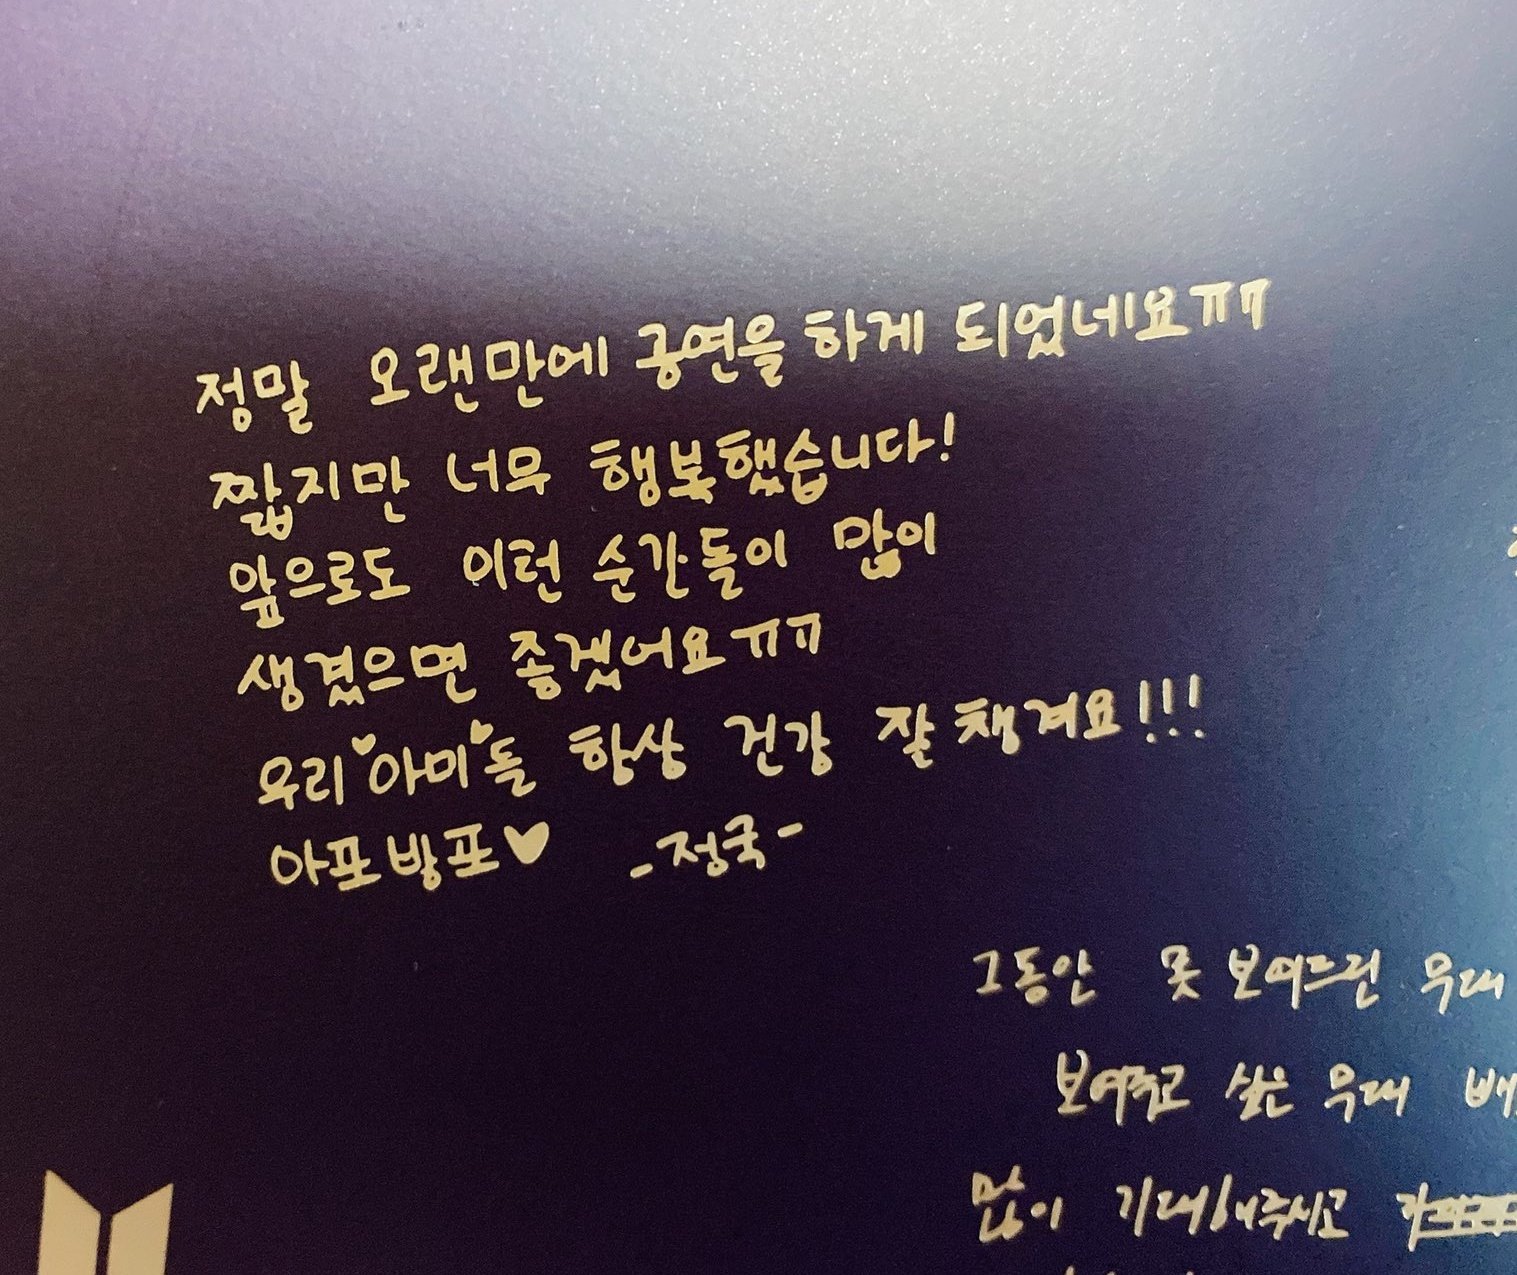 정말 오랜만에 공연을 하게 되었네요ㅠㅠ
짧지만 너무 행복했습니다!
앞으로도 이런 순간들이 많이
생겼으면 좋겠어요ㅠㅠ
우리 ♥아미♥들 항상 건강 잘 챙겨요!!!
아포방포♥ -정국-
그동안 못 보여드린 무대
보여주고 싶은 무대
많이 기대해주시고